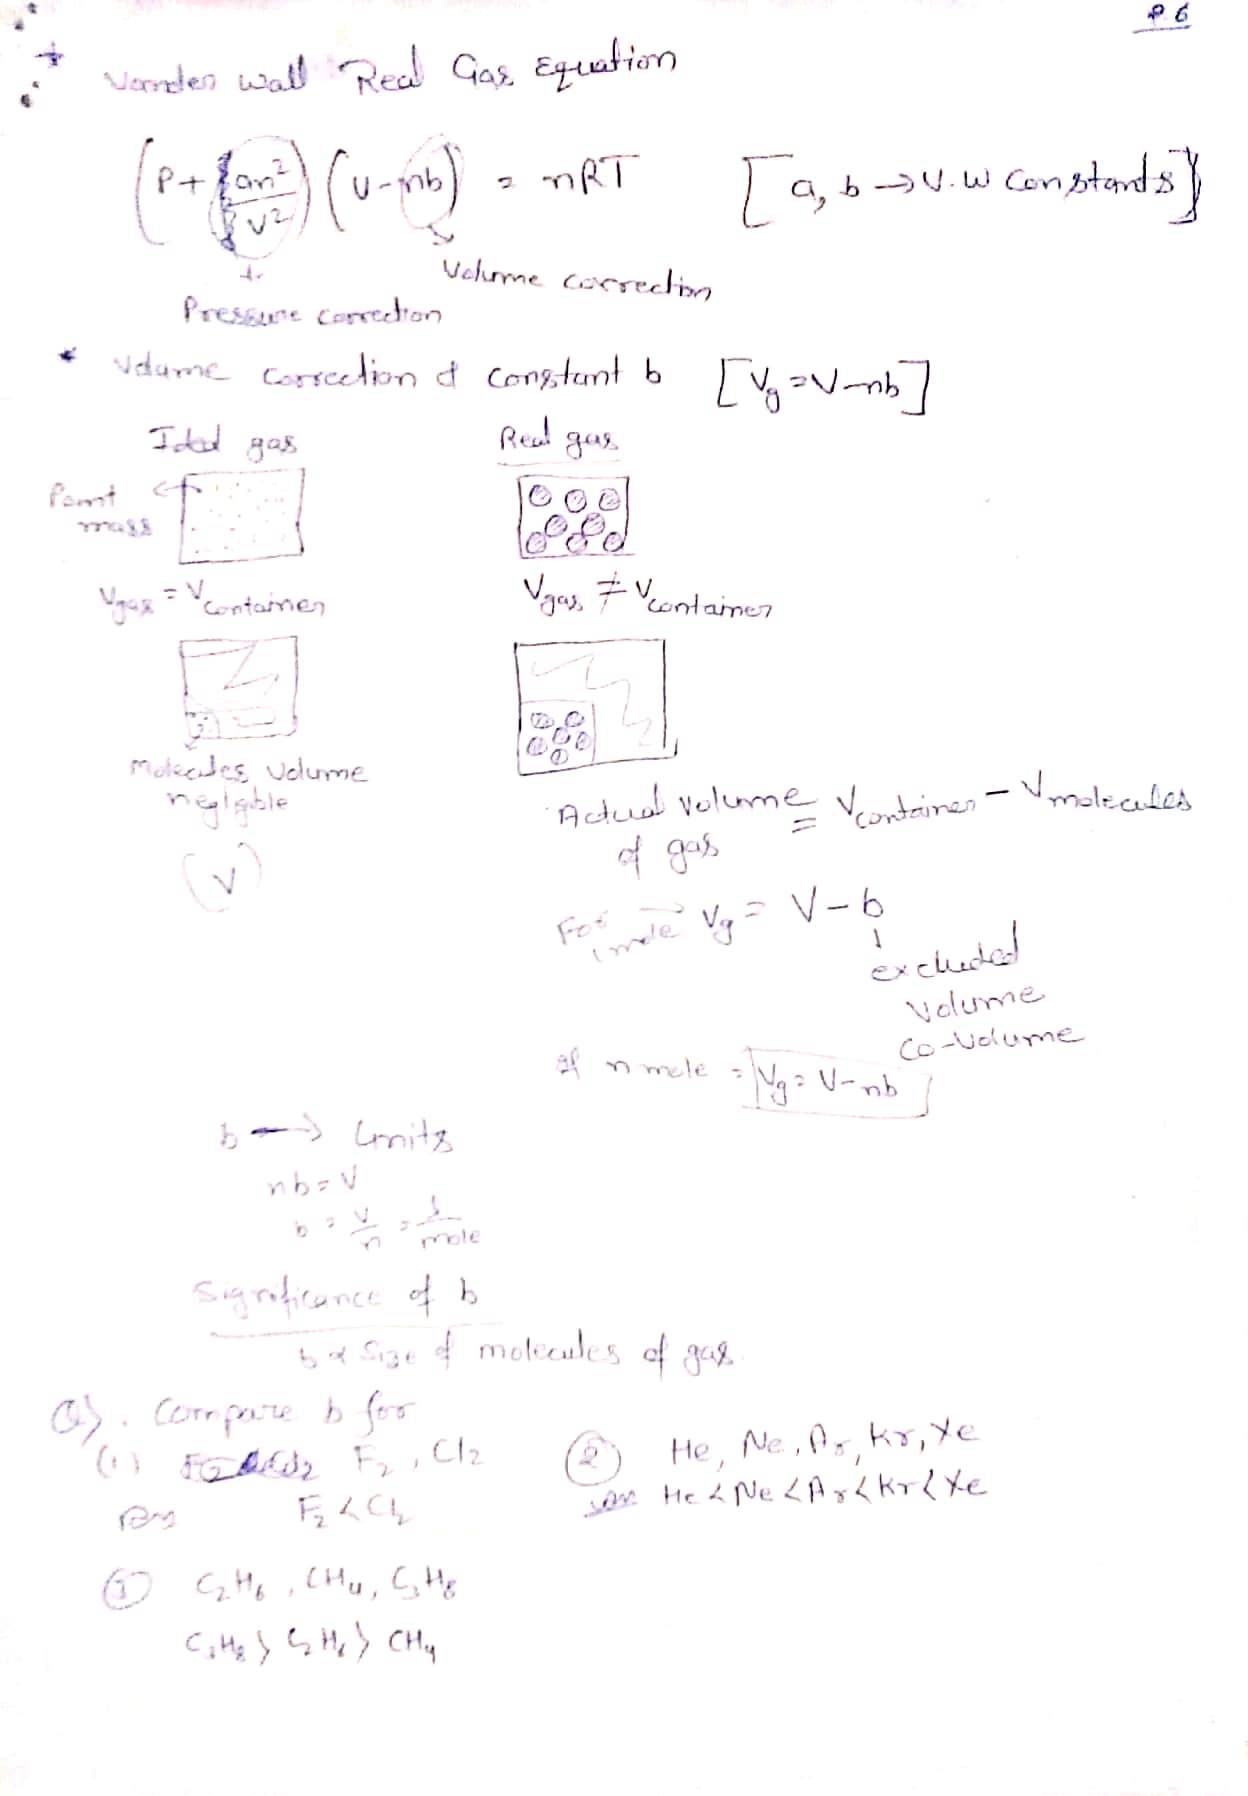 P6
Vander wall Real Gas Equation
(P + an²/V²) (V - nb) = nRT [a, b → V.W Constants]
Volume correction
Pressure correction
* Volume correction & constant b [Vg = V-nb]
Ideal gas Real gas
Point mass
Vgas = Vcontainer Vgas ≠ Vcontainer
Molecules volume
negligible
(V)
Actual volume = Vcontainer - Vmolecules
of gas
For 1 mole → Vg = V - b
excluded
volume
co-volume
If n mole = Vg = V-nb
b → Units
nb = V
b = V/n = l/mole
Significance of b
b α Size of molecules of gas
Q). Compare b for
(1) F₂, Cl₂
Ans F₂ < Cl₂
② He, Ne, Ar, Kr, Xe
Ans He < Ne < Ar < Kr < Xe
③ C₂H₆, CH₄, C₃H₈
C₃H₈ > C₂H₆ > CH₄